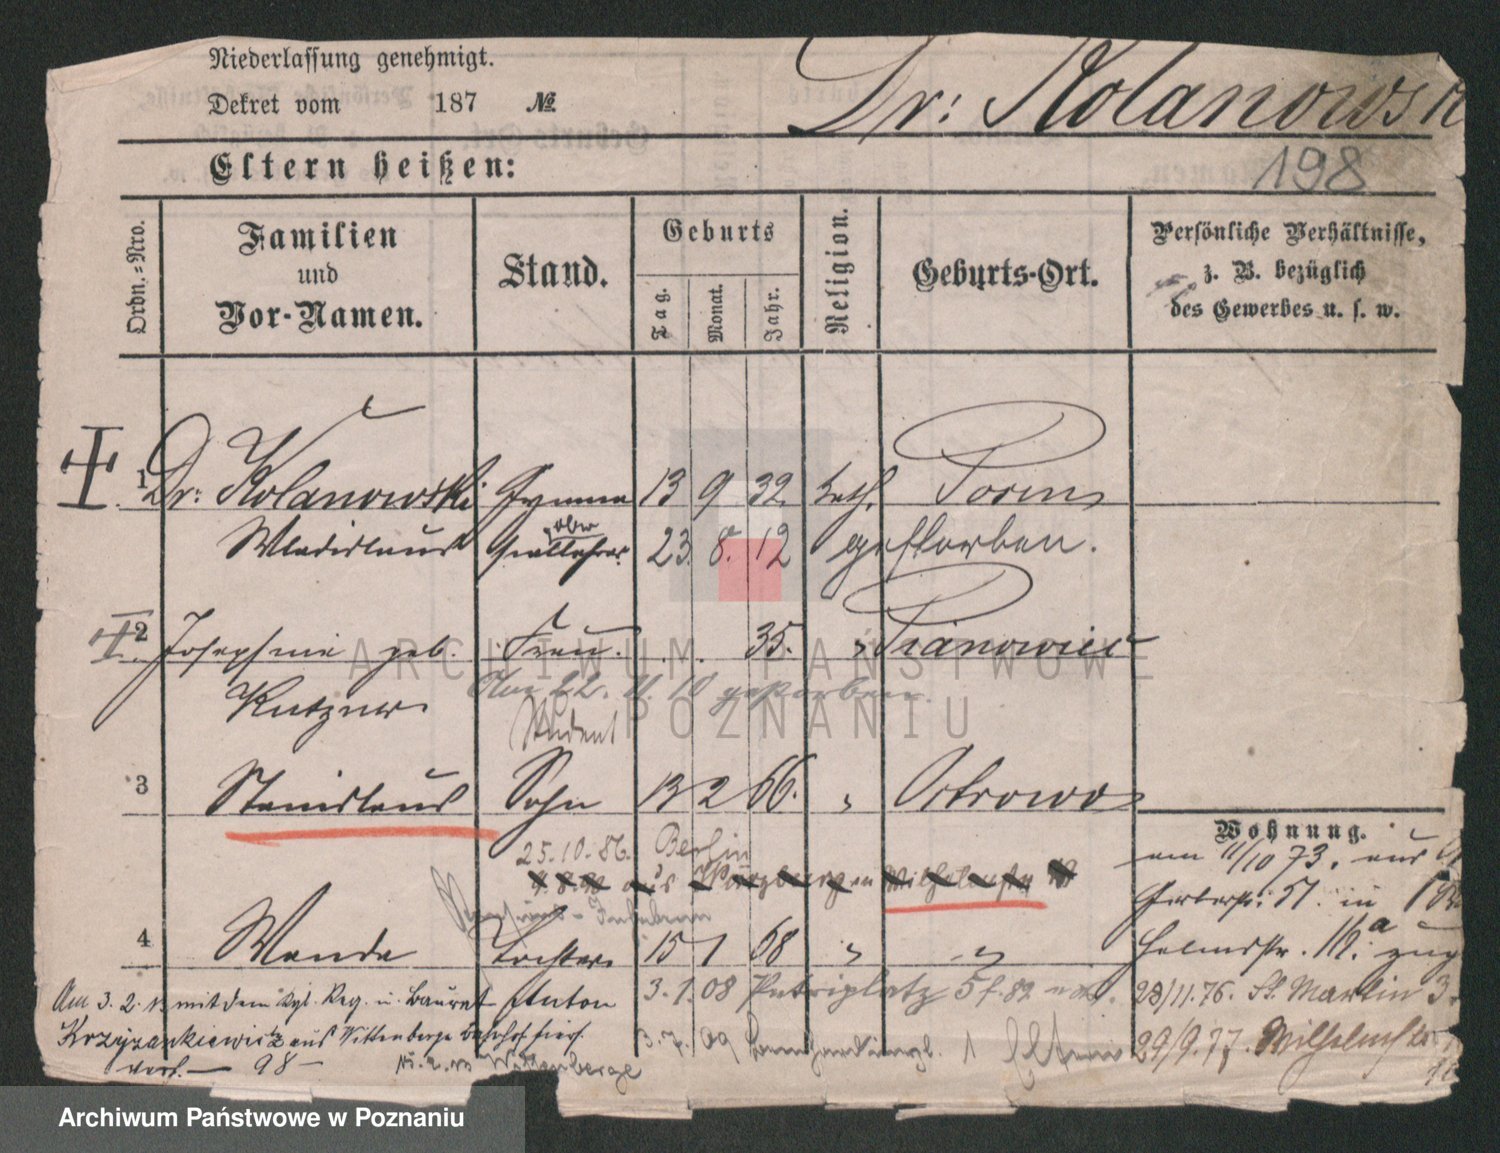 Niederlassung genehmigt.
Dekret vom 187 №
Dr: Kolanowsk
198
Eltern heißen:
Ordn.=Nro.
Familien
und
Vor-Namen.
Stand.
Geburts
Tag.
Monat.
Jahr.
Religion.
Geburts-Ort.
Persönliche Verhältnisse,
z. B. bezüglich
des Gewerbes u. s. w.
1 Dr: Kolanowski Gymna 13 9 32. kath. Posen
Wladislaus 23. 8. 12 gestorben.
2 Josephine geb. Frau. 35. " Pianowiec
Kutzner. Am 22. 11. 10 gestorben.
Student
3 Stanislaus Sohn 13 2 66. " Ostrowo
Wohnung.
25.10.86. Berlin
am 11/10 73. aus
51. in
4 Wanda Tochter 15 1 68 " "
helmstr. 16.a
Am 3.2. mit dem Kgl. Reg. u. Baurat Anton
3.1.08 Petriplatz 5
28/11.76. St. Martin 3
Krzyzankiewicz aus Wittenberge
3.7.09
29/9.77. Wilhelmstr
98
Wittenberge
ARCHIWUM PAŃSTWOWE
W POZNANIU
Archiwum Państwowe w Poznaniu